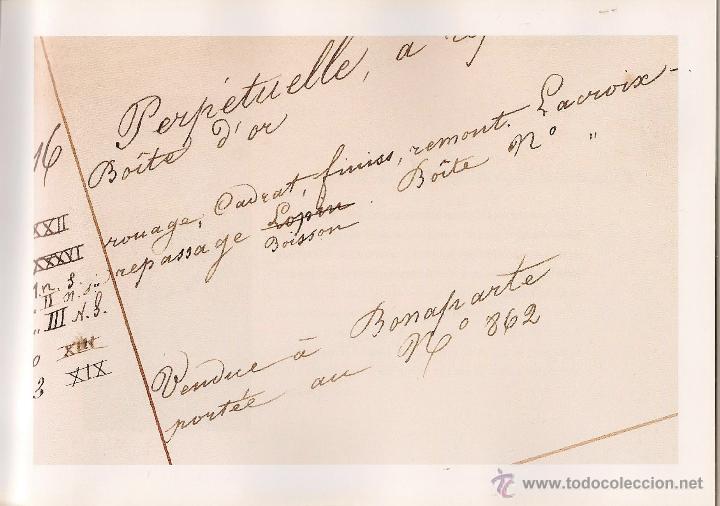 Perpétuelle, a
16
Boîte d'or
XXII
rouage, Cadrat, finiss, remont. Lacroix-
XXXVI
repassage Lopin. Boîte N° "
Boisson
II N. S.
" III N. S.
XIII
3 XIX
Vendue à Bonaparte
portée au N° 862
www.todocoleccion.net